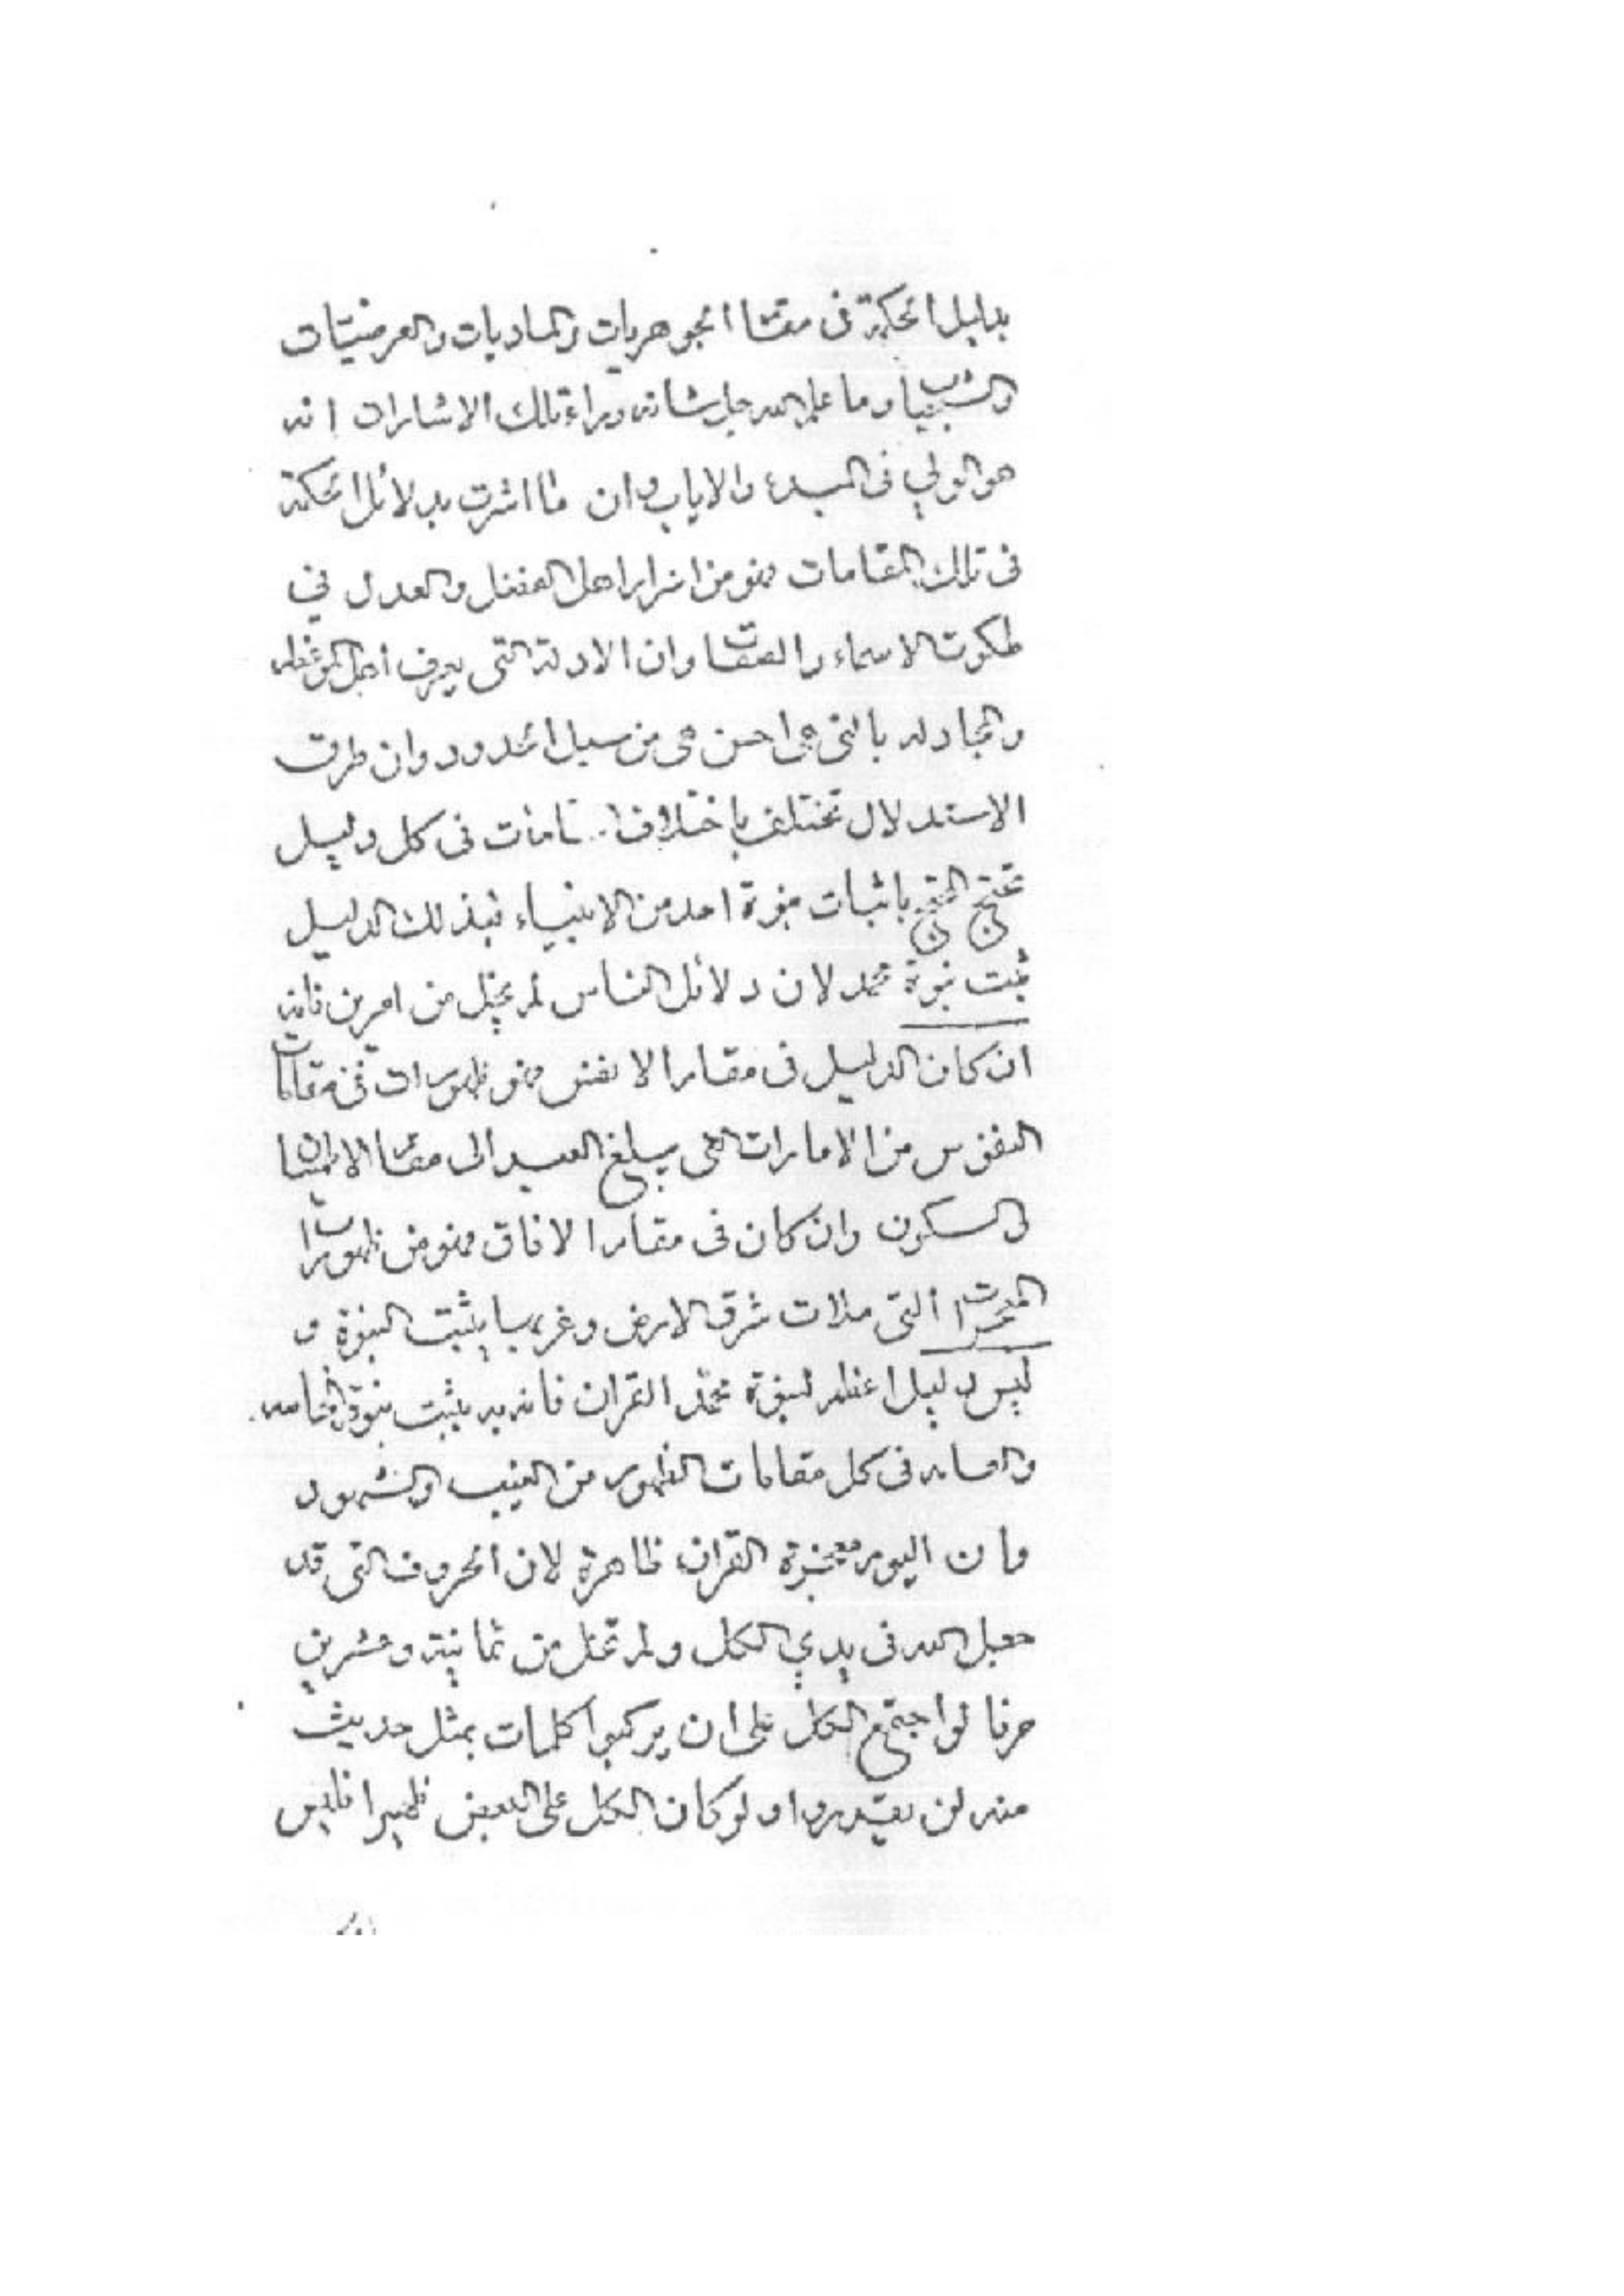 بدليل الحكمة فى مقامات الجوهريات والماديات والعرضيات
والشبحيات وما علم الله جل شانه وراء تلك الاشارات انه
هو الولي فى المبدء والاياب وان ما اشرت بدلائل الحكمة
فى تلك المقامات فهو من اسرار اهل الفضل والعدل في
ملكوت الاسماء والصفات وان الادلة التى يعرف اهل الموعظه
والمجادله بالتى هى احسن هى من سبل الحدود وان طرق
الاستدلال تختلف باختلاف المقامات فى كل دليل
تحتج باثبات نبوة احد من الانبياء فبذلك الدليل
ثبت نبوة محمد لان دلائل الناس لم يخل من امرين فانه
ان كان الدليل فى مقام الانفس فهو ظهورات فى مقامات
النفوس من الامارات التى يبلغ العبد الى مقام الاطمينان
والسكون وان كان فى مقام الافاق فهو من ظهورات
المعجزات التى ملات شرق الارض وغربها يثبت النبوة و
ليس دليل اعظم لنبوة محمد القران فانه به يثبت نبوة الخاصه
والعامه فى كل مقامات الظهور من الغيب والشهود
وان اليوم معجزة القران ظاهرة لان الحروف التى قد
جعل الله فى يدي الكل ولم تخل من ثمانية وعشرين
حرفا لو اجتمع الكل على ان يركبوا كلمات بمثل حديث
منه لن يقدروا ولو كان الكل على البعض ظهيرا فليس